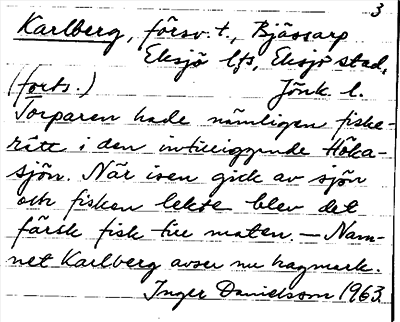 3
Karlberg, försv. t., Bjässarp
Eksjö lfs, Eksjö stad,
(forts.) Jönk. l.
Torparen hade nämligen fiske-
rätt i den intilliggende Höka-
sjön. När isen gick av sjön
och fisken lekte blev det
färsk fisk till maten. — Nam-
net Karlberg avser nu hagmark.
Inger Danielsson 1963